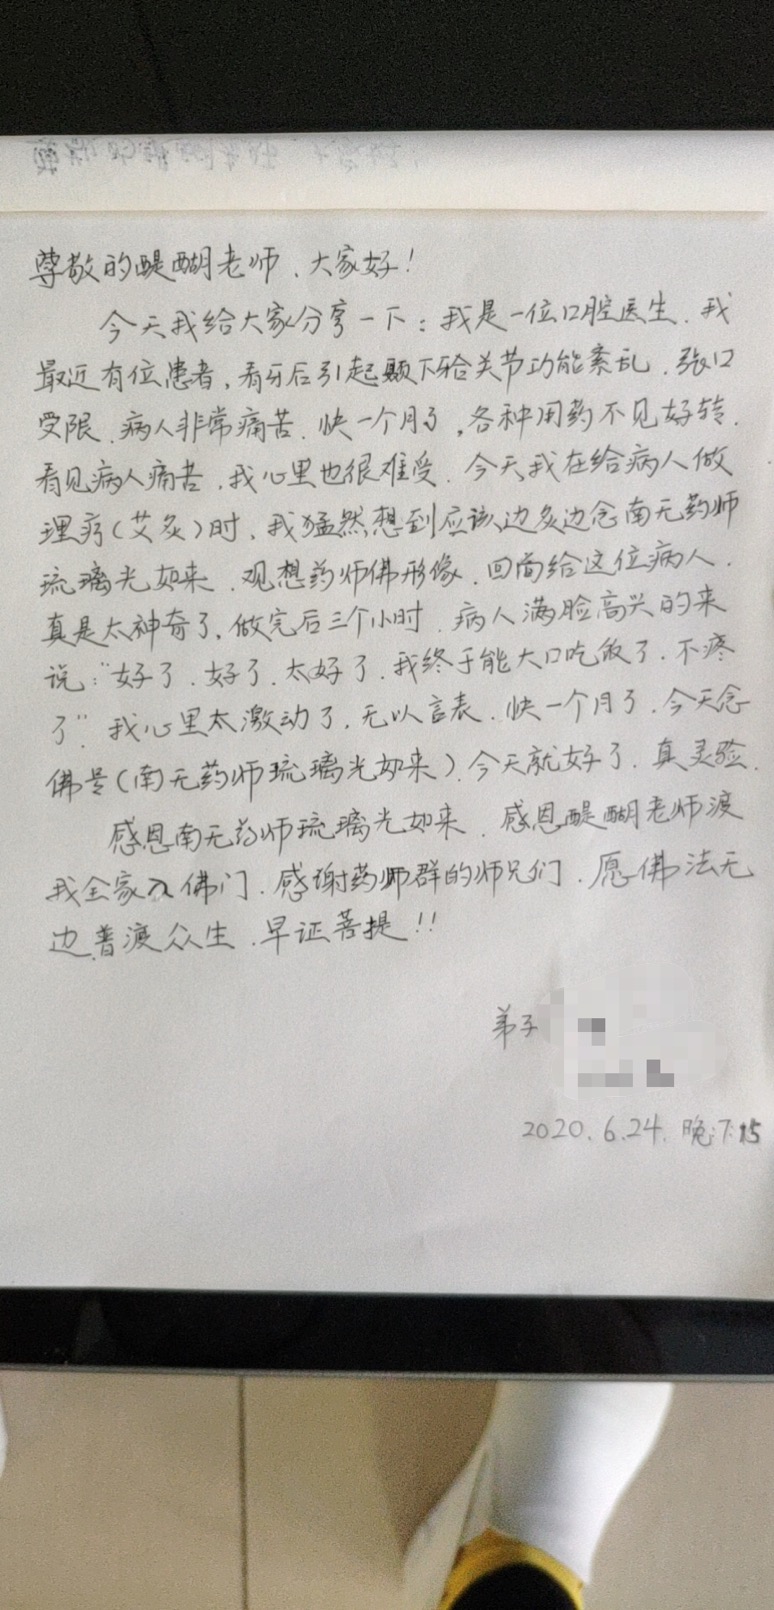 尊敬的醍醐老师、大家好！
今天我给大家分享一下：我是一位口腔医生．我
最近有位患者，看牙后引起颞下颌关节功能紊乱．张口
受限．病人非常痛苦．快一个月了，各种用药不见好转．
看见病人痛苦．我心里也很难受．今天我在给病人做
理疗（艾灸）时、我猛然想到应该边灸边念南无药师
琉璃光如来．观想药师佛形像．回向给这位病人．
真是太神奇了，做完后三个小时．病人满脸高兴的来
说：“好了．好了．太好了．我终于能大口吃饭了．不疼
了”．我心里太激动了．无以言表．快一个月了．今天念
佛号（南无药师琉璃光如来）．今天就好了．真灵验．
感恩南无药师琉璃光如来．感恩醍醐老师渡
我全家入佛门．感谢药师群的师兄们．愿佛法无
边．普渡众生．早证菩提！！
弟子
2020.6.24.晚7:15